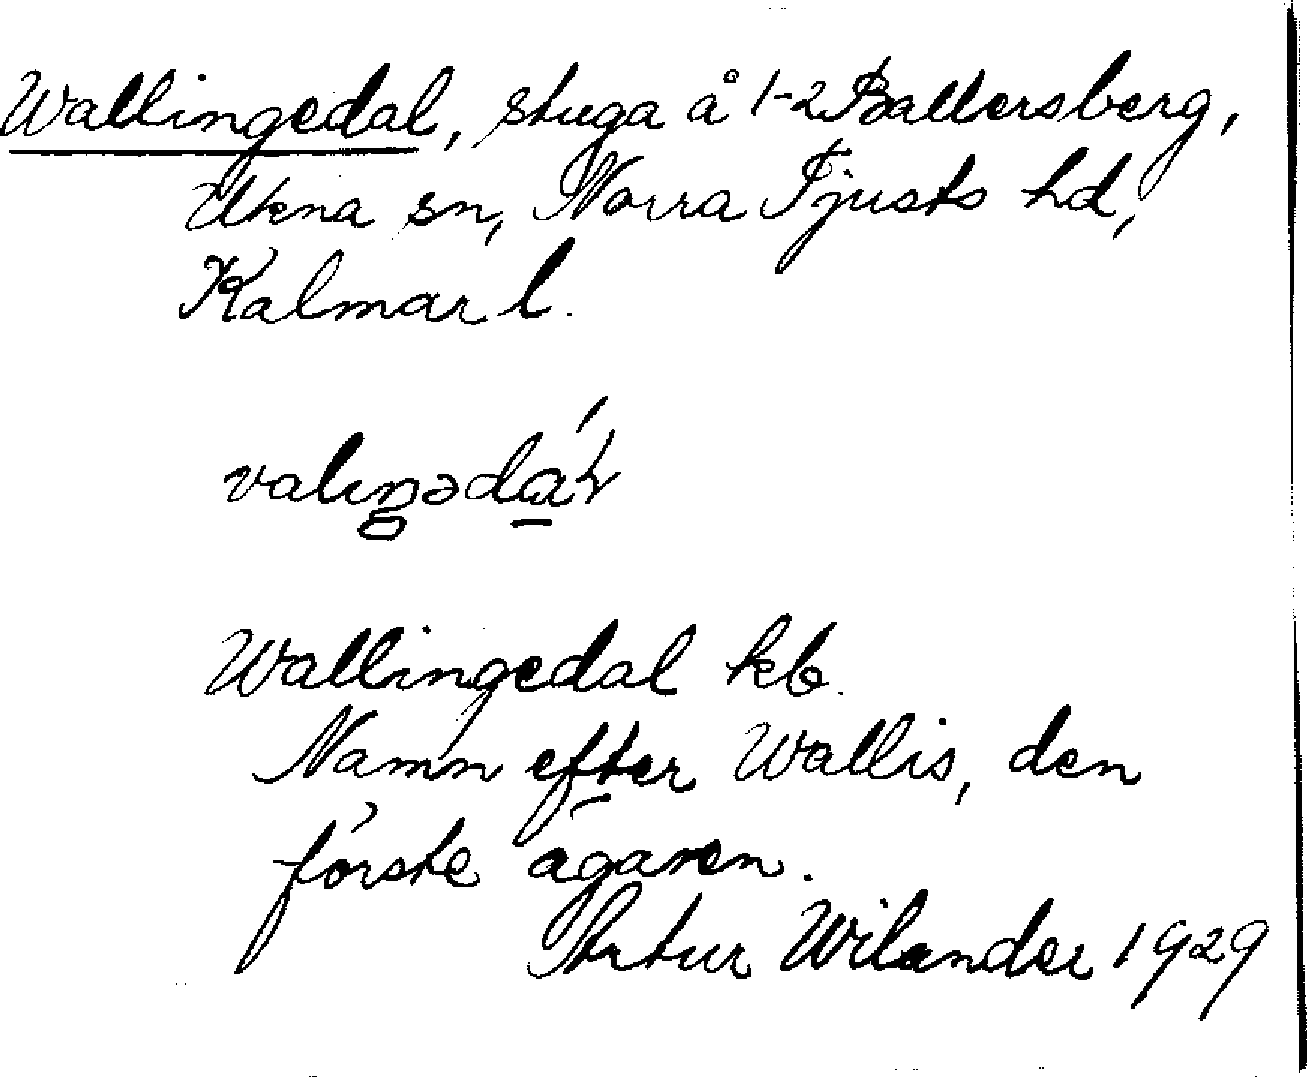 Wallingedal, stuga å 1-2 Ballersberg,
Ukna sn, Norra Tjusts hd,
Kalmar l.
valıŋədá̲ɫ
Wallingedal kb.
Namn efter Wallis, den
förste ägaren.
Artur Wilander 1929